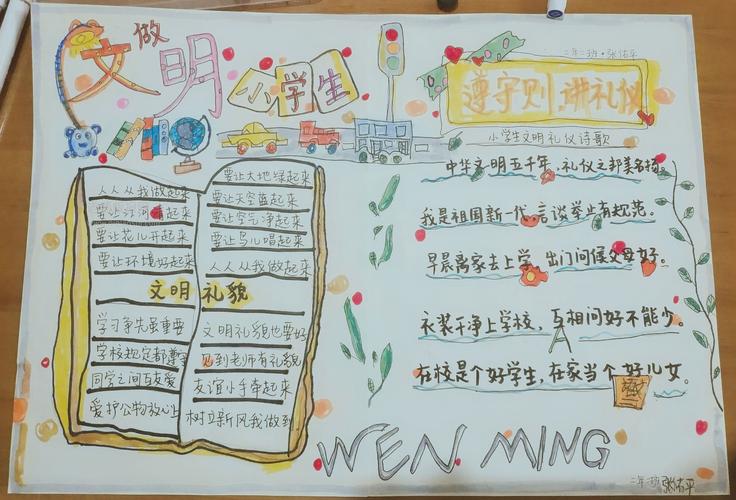 做文明小学生
人人从我做起来
要让江河清起来
要让花儿开起来
要让环境好起来
要让大地绿起来
要让天空蓝起来
要让空气净起来
要让鸟儿唱起来
人人从我做起来
文明礼貌
学习争先虽重要
学校规定都遵守
同学之间互友爱
爱护公物放心上
文明礼貌也要好
见到老师有礼貌
友谊小手牵起来
树立新风我做到
二年二班·张佑平
遵守则 讲礼仪
小学生文明礼仪诗歌
中华文明五千年,礼仪之邦美名扬。
我是祖国新一代,言谈举止有规范。
早晨离家去上学,出门问候父母好。
衣装干净上学校,互相问好不能少。
在校是个好学生,在家当个好儿女。
WEN MING
二年二班 张佑平